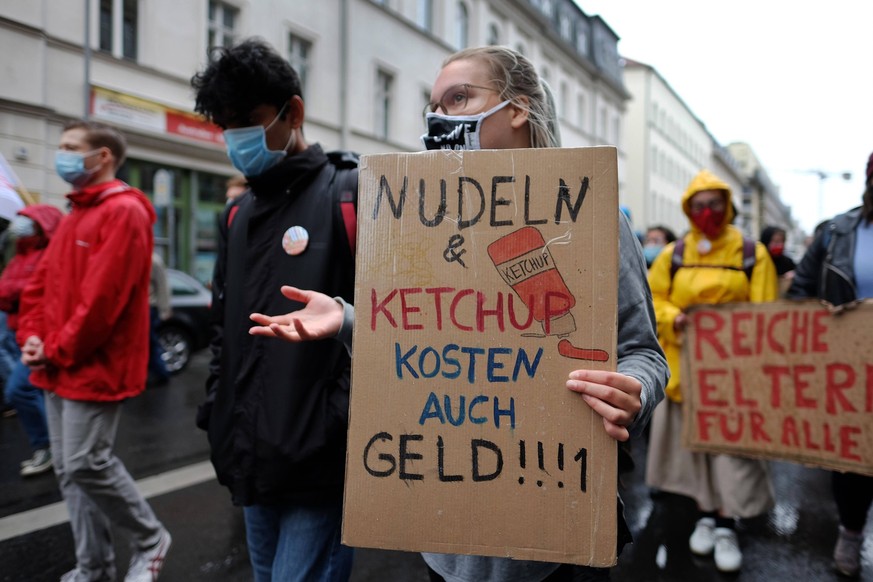 NUDELN
&
KETCHUP
KETCHUP
KOSTEN
AUCH
GELD!!!1
REICHE
ELTERN
FÜR ALLE